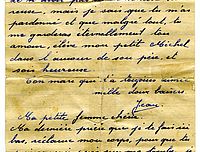 reuse, mais je sais que tu m'as
pardonné et que malgré tout, tu
me garderas éternellement ton
amour, élève mon petit Michel
dans l'amour de son père, et
sois heureuse.
Ton mari qui t'a toujours aimée
mille doux baisers.
Jean.
Ma petite femme chérie
Ma dernière prière que je te fais ici
bas, réclame mon corps, pour que tu